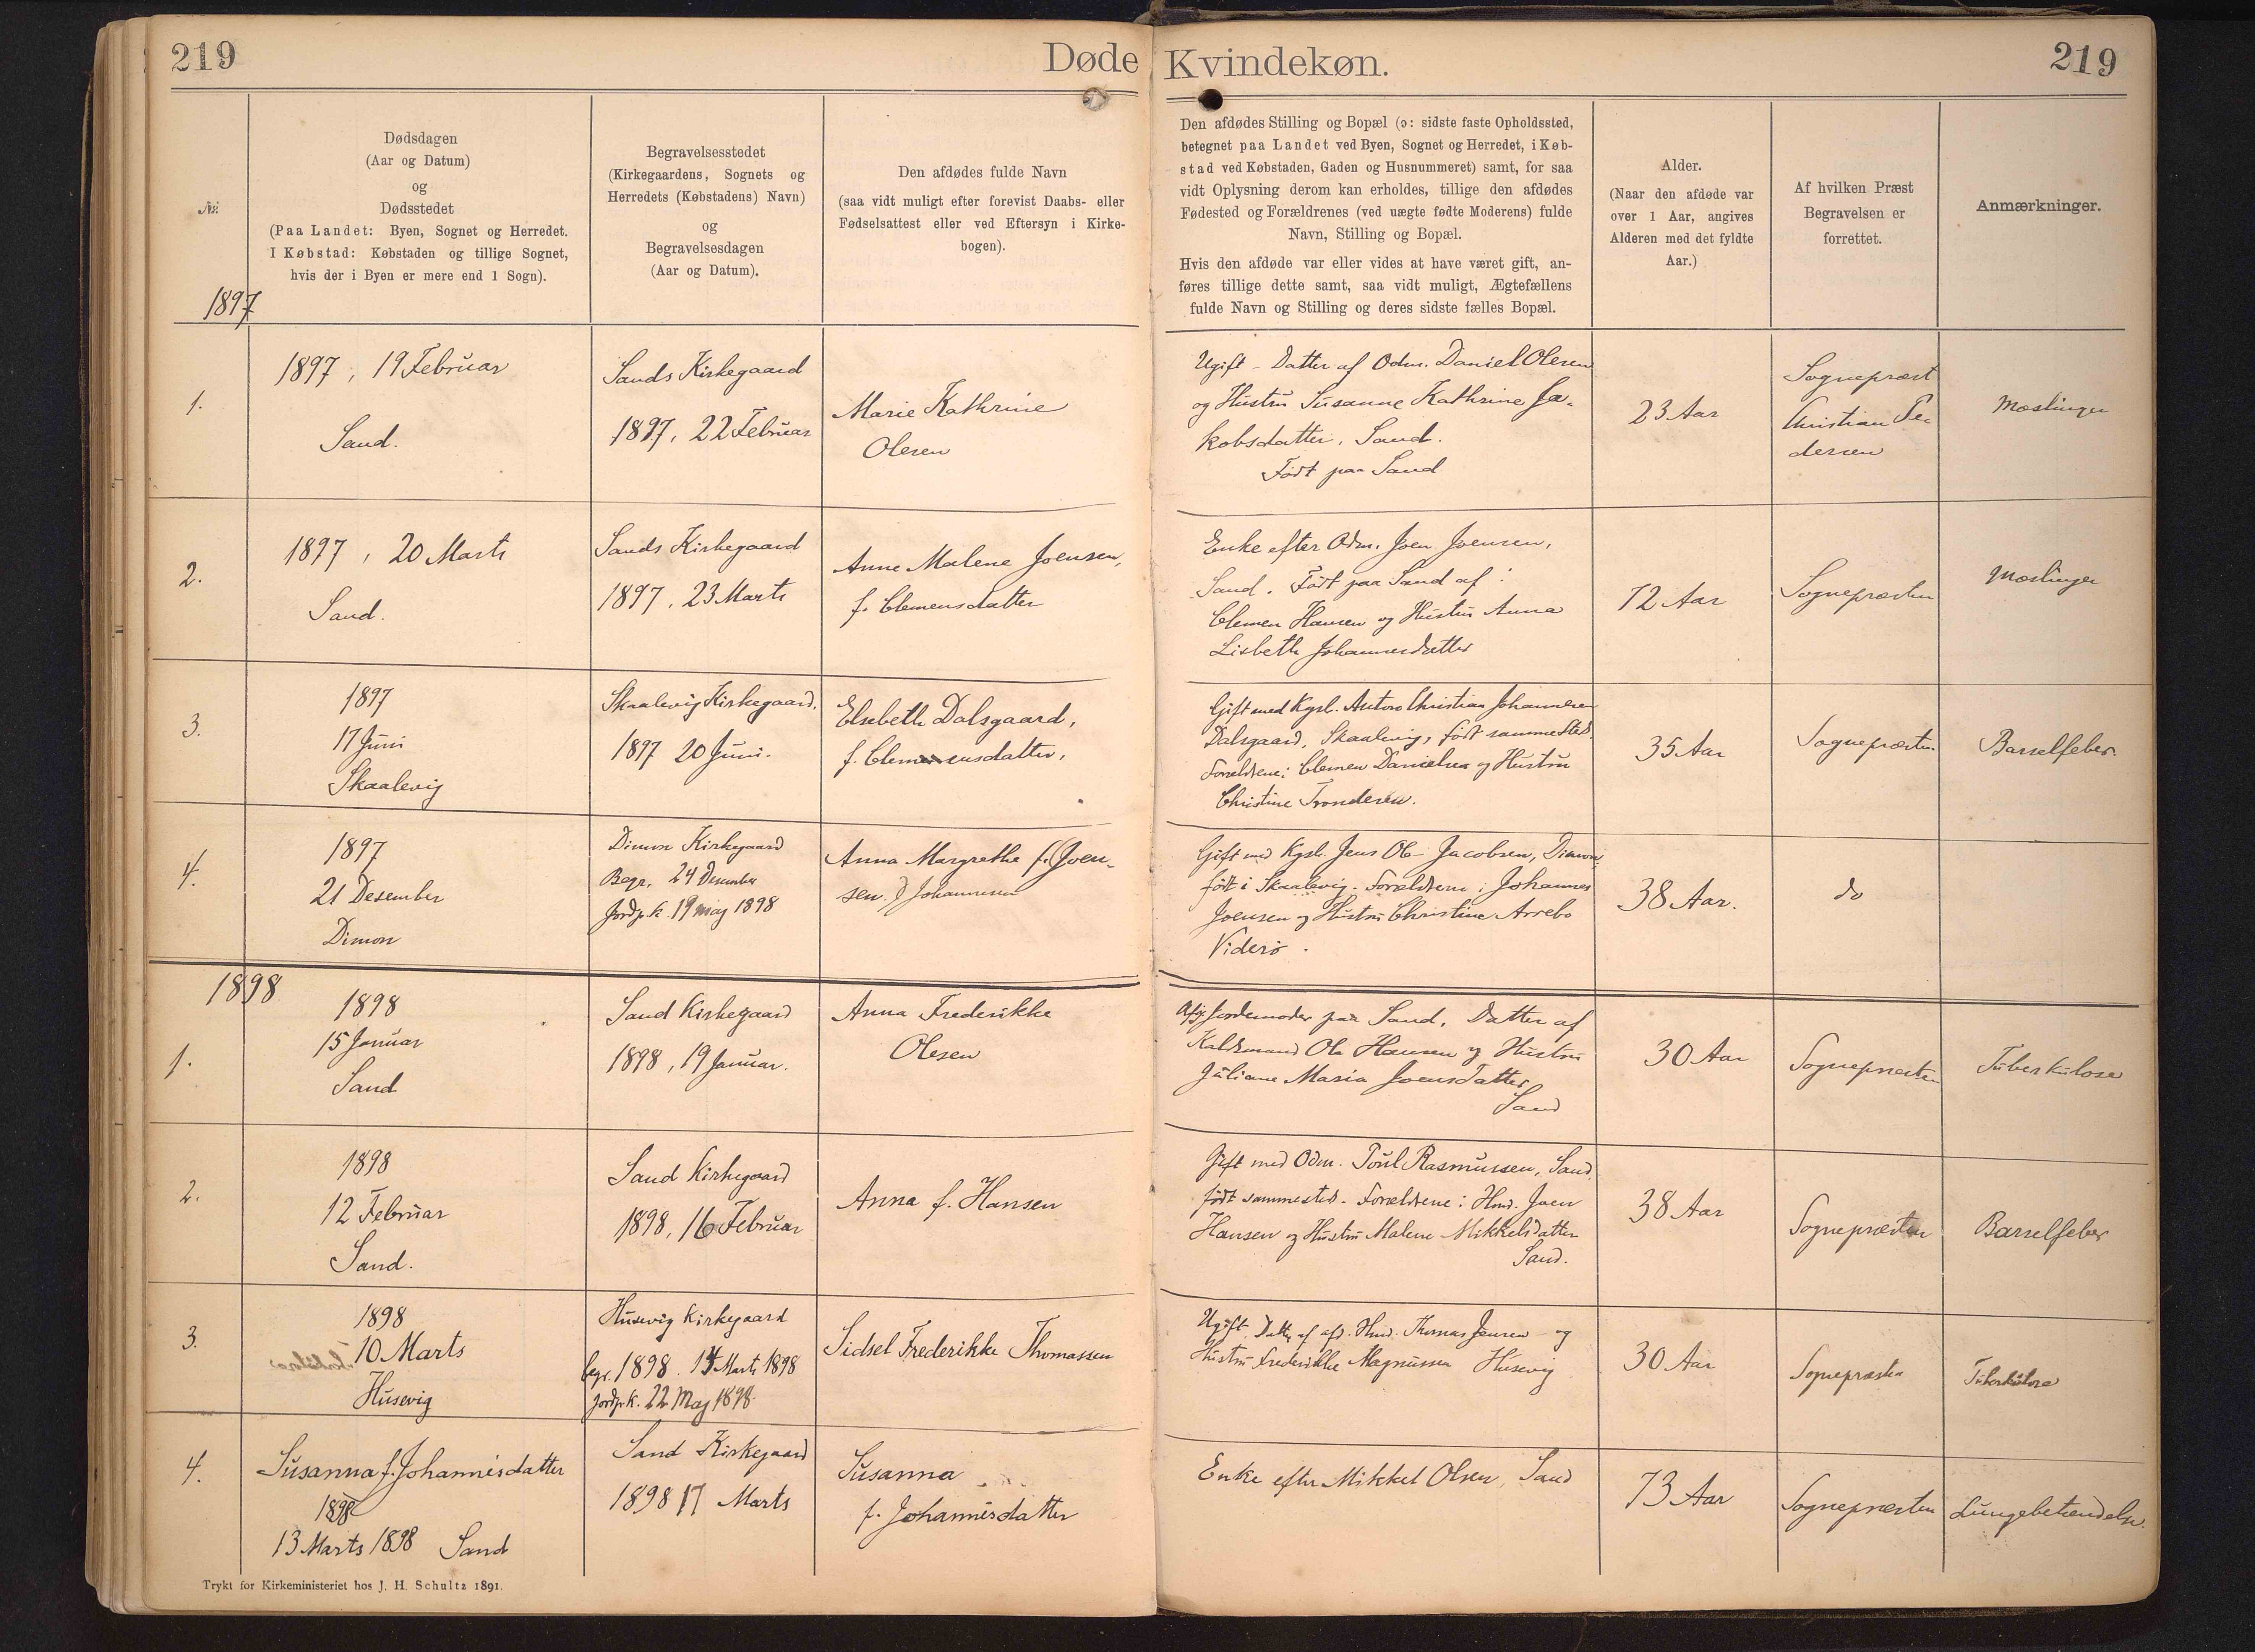 219
Døde
Kvindekøn.
219
№
Dødsdagen
(Aar og Datum)
og
Dødsstedet
(Paa Landet: Byen, Sognet og Herredet.
I Købstad: Købstaden og tillige Sognet,
hvis der i Byen er mere end 1 Sogn).
Begravelsesstedet
(Kirkegaardens, Sognets og
Herredets (Købstadens) Navn)
og
Begravelsesdagen
(Aar og Datum).
Den afdødes fulde Navn
(saa vidt muligt efter forevist Daabs- eller
Fødselsattest eller ved Eftersyn i Kirke-
bogen).
Den afdødes Stilling og Bopæl (ɔ: sidste faste Opholdssted,
betegnet paa Landet ved Byen, Sognet og Herredet, i Køb-
stad ved Købstaden, Gaden og Husnummeret) samt, for saa
vidt Oplysning derom kan erholdes, tillige den afdødes
Fødested og Forældrenes (ved uægte fødte Moderens) fulde
Navn, Stilling og Bopæl.
Hvis den afdøde var eller vides at have været gift, an-
føres tillige dette samt, saa vidt muligt, Ægtefællens
fulde Navn og Stilling og deres sidste fælles Bopæl.
Alder.
(Naar den afdøde var
over 1 Aar, angives
Alderen med det fyldte
Aar.)
Af hvilken Præst
Begravelsen er
forrettet.
Anmærkninger.
1897
1.
1897, 19 Februar
Sand.
Sands Kirkegaard
1897, 22 Februar
Marie Kathrine
Olesen
Ugift - Datter af Odm. Daniel Olesen
og Hustru Susanne Kathrine Ja-
kobsdatter, Sand.
Født paa Sand
23 Aar
Sognepræst
Christian Pe-
dersen
Mæslinger
2.
1897, 20 Marts
Sand.
Sands Kirkegaard
1897, 23 Marts
Anne Malene Joensen,
f. Clemensdatter
Enke efter Odm. Joen Joensen,
Sand. Født paa Sand af:
Clemen Hansen og Hustru Anna
Lisbeth Johannesdatter
72 Aar
Sognepræsten
Mæslinger
3.
1897
17 Juni
Skaalevig
Skaalevig Kirkegaard.
1897 20 Juni.
Elsebeth Dalsgaard,
f. Clemensdatter,
Gift med Kgsb. Christian Johannesen
Dalsgaard, Skaalevig, født sammested.
Forældrene: Clemen Danielsen og Hustru
Christine Trondesen.
35 Aar
Sognepræsten
Barselfeber.
4.
1897
21 Desember
Dimon
Dimon Kirkegaard
Begr. 24 Desember
Jordp. k. 19 Maj 1898
Anna Margrethe f. (Joen-
sen.) Johannesen
Gift med Kgsb. Jens Ole Jacobsen, Dimon,
født i Skaalevig. Forældrene: Johannes
Joensen og Hustru Christine Arrebo
Viderø.
38 Aar.
do
1898
1.
1898
15 Januar
Sand
Sand Kirkegaard
1898, 19 Januar.
Anna Frederikke
Olesen
Jordemoder paa Sand. Datter af
Ole Hansen og Hustru
Juliane Maria Joensdatter
Sand
30 Aar
Sognepræsten
Tuberkulose
2.
1898
12 Februar
Sand.
Sand Kirkegaard
1898, 16 Februar
Anna f. Hansen
Gift med Odm. Poul Rasmussen, Sand,
født sammested. Forældrene: Hmd. Joen
Hansen og Hustru Malene Mikkelsdatter
Sand.
38 Aar
Sognepræsten
Barselfeber
3.
1898
10 Marts
Husevig
Husevig Kirkegaard
begr. 1898 14 Marts 1898
Jordp. k. 22 Maj 1898.
Sidsel Frederikke Thomassen
Ugift. Datter af afd. Hmd. Thomas Jensen og
Hustru Frederikke Magnussen Husevig
30 Aar
Sognepræsten
Tuberkulose
4.
Susanna f. Johannisdatter
1898
13 Marts 1898 Sand
Sand Kirkegaard
1898 17 Marts
Susanna
f. Johannisdatter
Enke efter Mikkel Olsen, Sand
73 Aar
Sognepræsten
Lungebetændelse.
Trykt for Kirkeministeriet hos J. H. Schultz 1891.